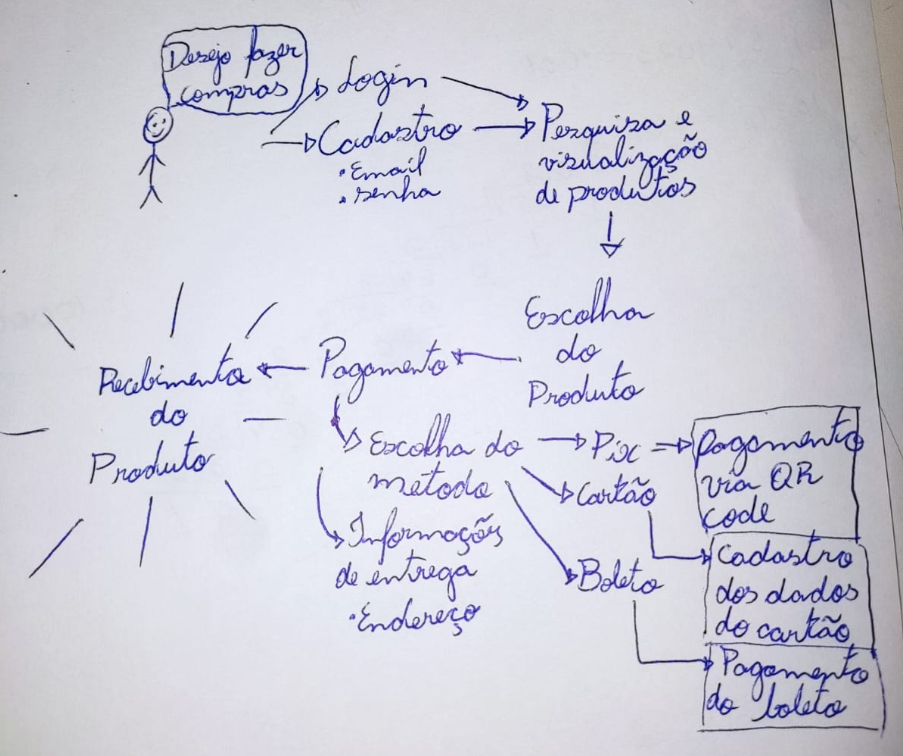 Desejo fazer
compras
Login
Cadastro
• Email
• senha
Pesquisa e
visualização
de produtos
Escolha
do
Produto
Pagamento
Recebimento
do
Produto
Escolha do
metodo
Pix
Pagamento
via QR
code
Cartão
Cadastro
dos dados
do cartão
Boleto
Pagamento
do boleto
Informações
de entrega
• Endereço